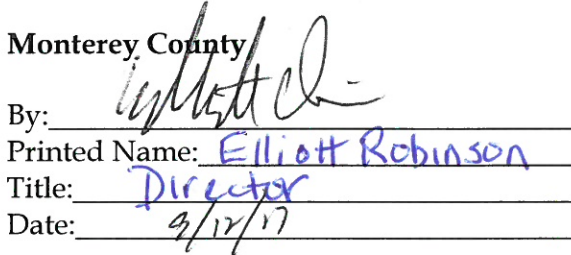 Monterey County
By:
Printed Name: Elliott Robinson
Title: Director
Date: 9/12/17